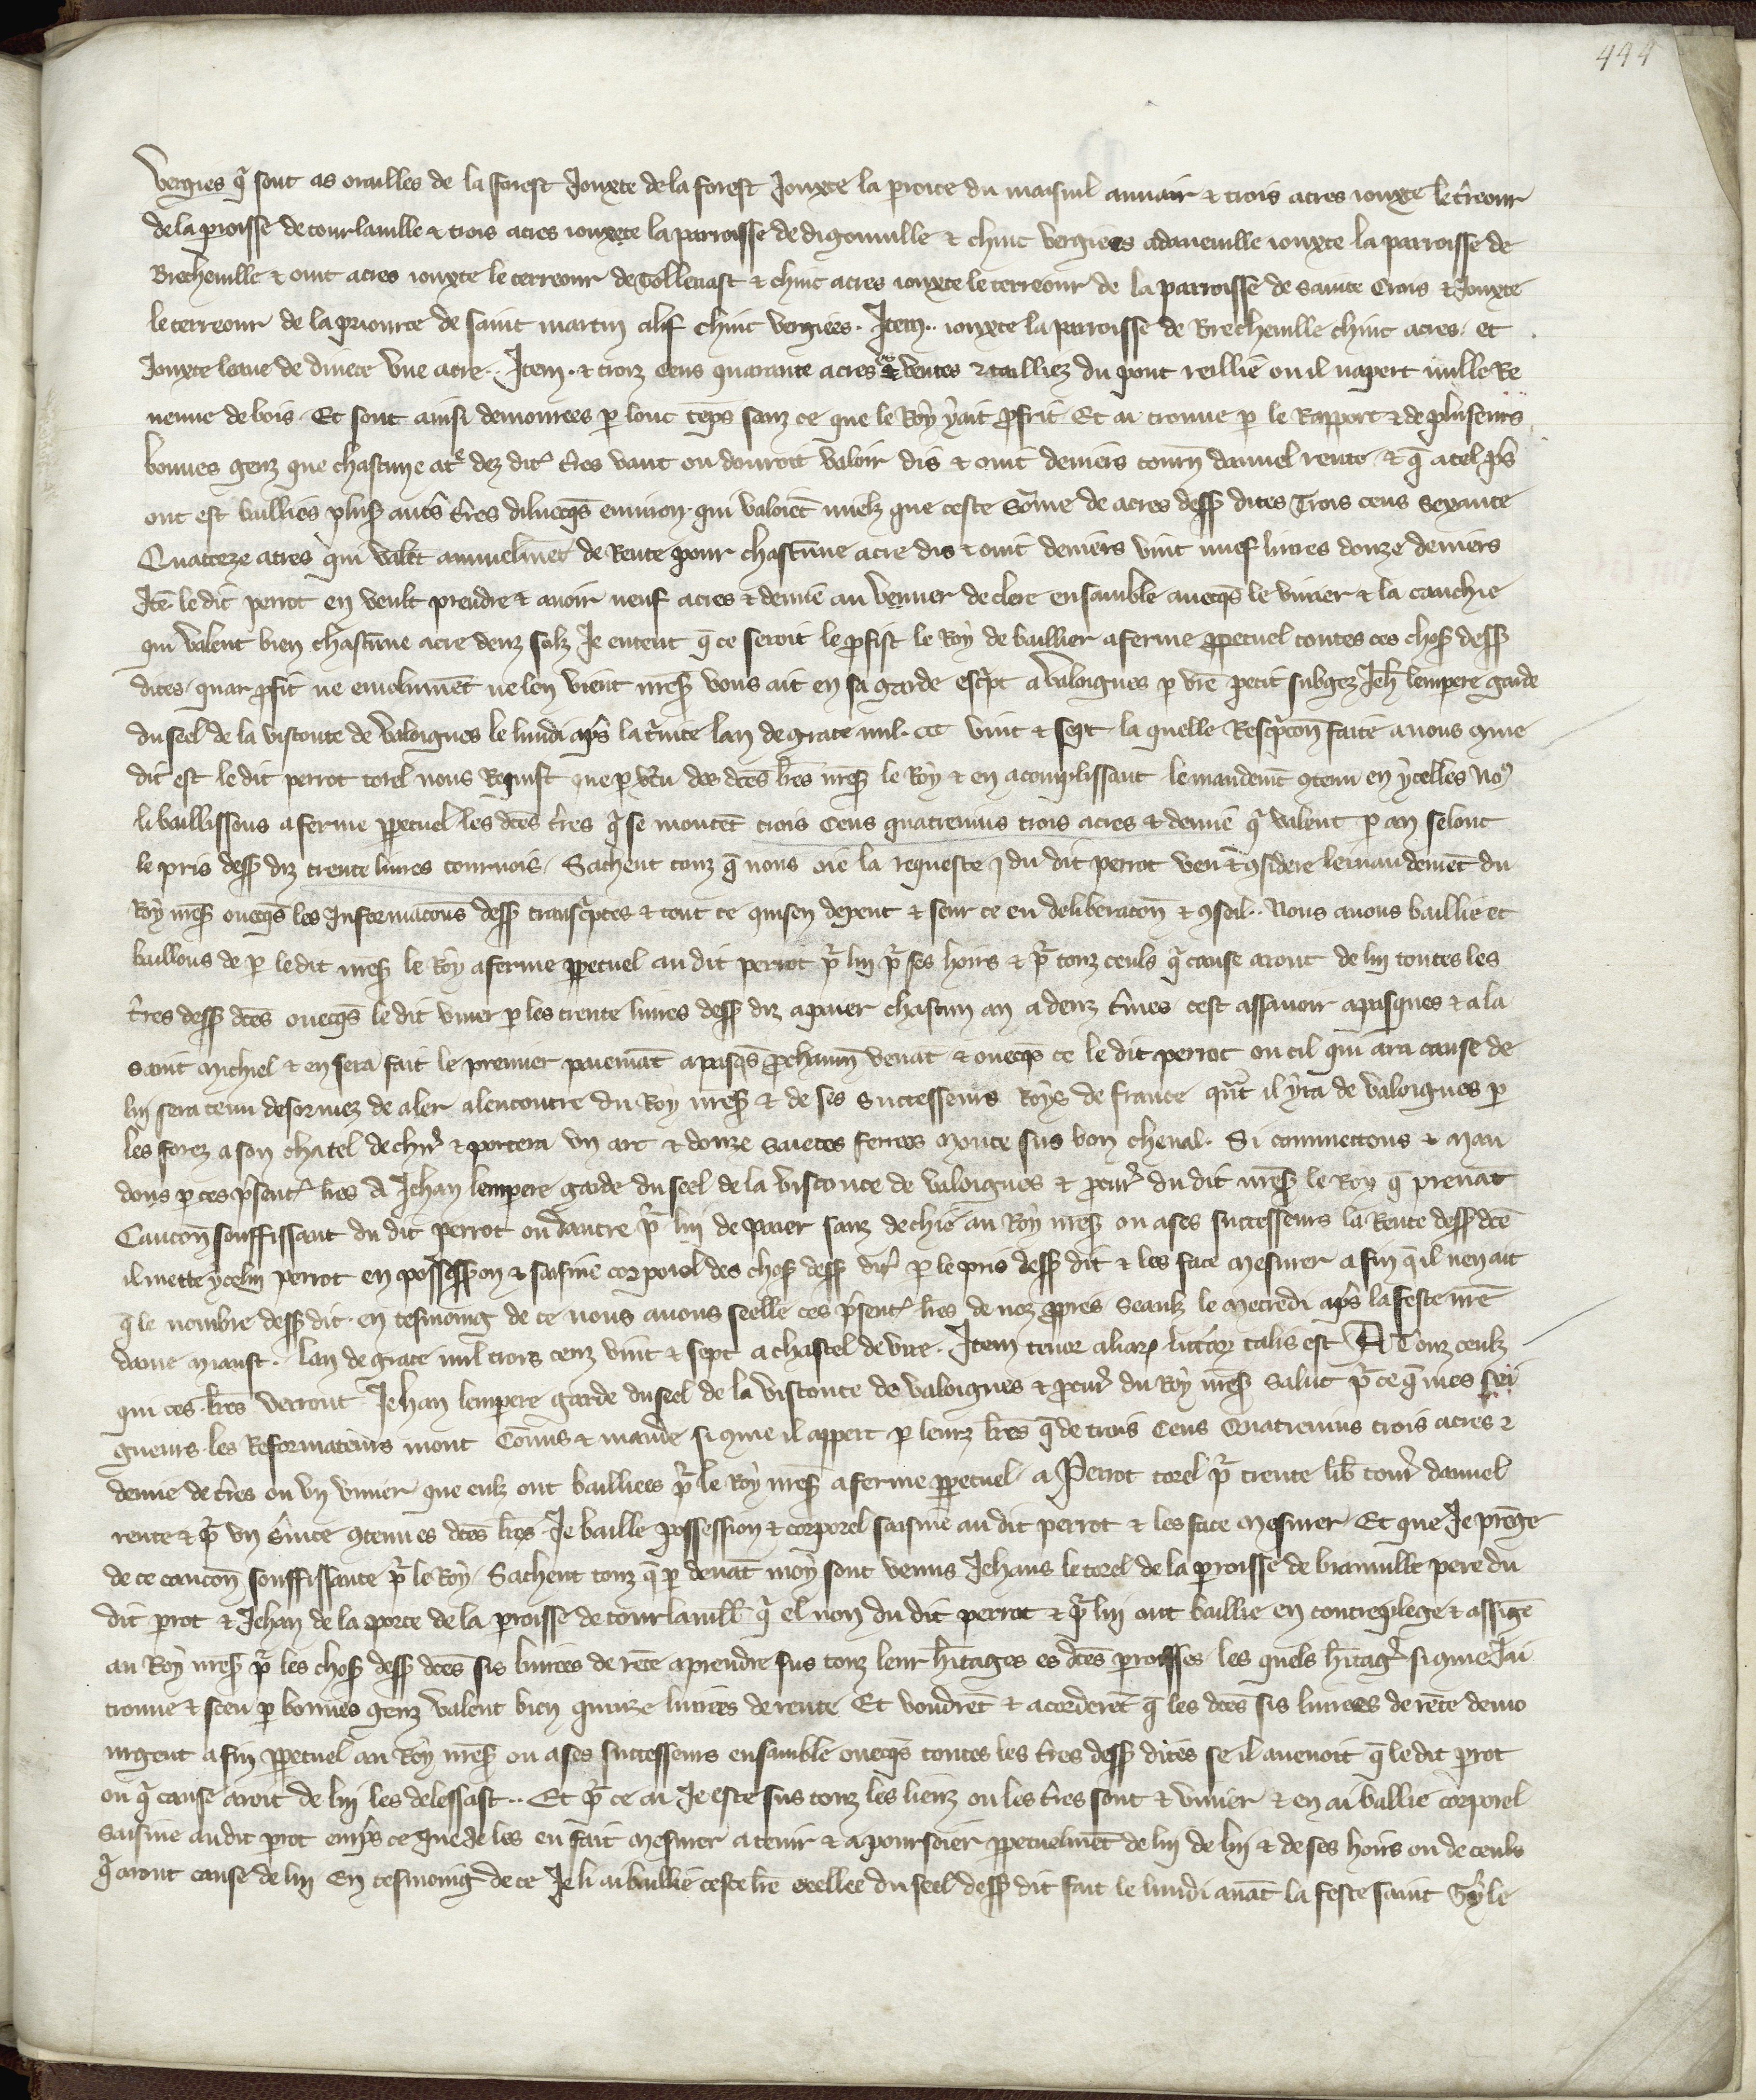 444
Vergies q̃ sont as orailles de la forest Jouxte de la forest Jouxte la proice du maisnil auuair ⁊ trois acres iouxte le t̃reour
de la proisse de tourlauille ⁊ trois acres iouxete la parroisse de digouuille ⁊ chinc vergiees adaneuille iouxte la parroisse de
Brecheuille ⁊ oint acres iouxte le terreour de Tolleuast ⁊ chinc acres iouxte le terreour de la parroisse de sainte Crois ⁊ Jouxte
le terreour de la priourte de saint martin alif chinc vergiees. Item. iouxte la parroisse de Brecheuille chinc acres. et
Jouxte leaue de diuete vne acre. Item. ⁊ troiz Cens quarante acres es ventes ⁊ tailliez du pont reillie ou il napert nulle Re
uenue de bois. Et sont ainsi demourees p lonc tẽps sanz ce que le Roy y ait ꝓfit. Et ai trouue p le Rapport ⁊ de pluseurs
bonnes genz que chascune acᵉ dez dit̃ t̃res vaut ou douroit valoir dis ⁊ oint deniers tourñ dannuel rente. ⁊ q̃ a tel p̃s
ont est baillies plus̃ aut̃s t̃res dilueqs̃ enuiron. qui valoiẽt mielz que ceste sõme de acres dess̃ dites Trois cens sexante
Quatreze acres qui valẽt annuelmẽt de Rente pour chascũne acre dis ⁊ oint deniers vint nuef liures douze deniers
Itẽ le dit perrot en veult prendre ⁊ auoir neuf acres ⁊ demie au vemier de clere ensamble aueqs̃ le viuier ⁊ la cauchie
qui valent bien chascũne acre deuz solz Je entent q̃ ce seroit le ꝓfist le Roy de baillier a ferme ꝑpetuel toutes ces chos̃ dess̃
dites. quar ꝓfit ne emolumẽt ne len vient nres̃ vous ait en sa garde esc̃pt a Valoignes p vr̃e petit subgez Jeh̃ lempere garde
du seel de la visconte de Valoignes le lundi ap̃s la t̃nite lan de grace mil. CCC vint ⁊ sept. la quelle Resc̃pcõn faite a nous ꝯme
dit est le dit perrot torel nous Requist que p v̾tu des dc̃es l̃res nres̃ le Roy ⁊ en acomplissant le mandemẽt ꝯtenu en ycelles no⁹
li baillissons a ferme ꝑpetuel les dc̃es t̃res q̃ se montẽt trois Cens quatreuins trois acres ⁊ demie q̃ valent p an selonc
le pris dess̃ diz trente liures tournois. Sachent touz q̃ nous oie la requeste du dit perrot veu ⁊ ꝯsidere le mandemẽt du
Roy nres̃ oueqs̃ les Informac̃ons dess̃ transc̃ptes ⁊ tout ce qui sen depent ⁊ seur ce eu deliberac̃on ⁊ ꝯseil. Nous auons baillie et
baillons de p le dit nres̃ le Roy a ferme ꝑpetuel au dit perrot p̃ lui p̃ ses hoirs ⁊ p̃ touz ceuls q̃ cause aront de lui toutes les
t̃res dess̃ dc̃es oueqs̃ le dit viuier p les trente liures dess̃ diz a paier chascun an a deuz t̃mes. cest assauoir a pasques ⁊ a la
saint michiel ⁊ en sera fait le premier paiemãt a pasqs̃ ꝓchainm̃ venãt ⁊ oueqs̃ ce le dit perrot ou cil qui ara cause de
lui sera tenu desormez de aler alencontre du Roy nres̃ ⁊ de ses successeurs Roys de france quãt il yra de Valoignes p
les forez a son chatel de chir̃ ⁊ portera vn arc ⁊ douze saietes ferrees monte sus bon cheual. Si commettons ⁊ man
dons p ces p̃sent̃ l̃res A Jehan lempere garde du seel de la visconte de Valoignes ⁊ ꝓcur̃ du dit nres̃ le Roy q̃ prenãt
Caucõn souffissant du dit perrot ou dautre p̃ lui de paier sanz dechie au Roy nres̃ ou a ses successeurs la Rente dess̃ dc̃e
il mette ycelui perrot en possess̃on ⁊ saisine corporel des chos̃ dess̃ dit̃ p le pris dess̃ dit ⁊ les face mesurer a fin q̃ il nen ait
q̃ le nombre dess̃ dit. en tesmoing de ce nous auons seelle ces p̃sent̃ l̃res de noz ꝓpres seaulz le mecredi ap̃s la feste nr̃e
dame miaust. lan de grace mil trois cenz vint ⁊ sept a chastel de vire. Item tenor aliaꝝ litt̃aꝝ talis est A Touz ceulz
qui ces l̃res verront Jehan lempere garde du seel de la visconte de Valoignes ⁊ ꝓcur̃ du Roy nres̃ salut p̃ ce q̃ mes sei
gneurs les Reformateurs mont Cõmis ⁊ mande si ꝯme il appert p leurz l̃res q̃ de trois Cens Quatreuins trois acres ⁊
demie de t̃res ou vn viuier que eulz ont bailliees p̃ le Roy nres̃ a ferme ꝑpetuel a Perrot torel p̃ trente lib̃ tour̃ dannuel
rente ⁊ p̃ vn s̃uice ꝯtenu es dc̃es l̃res Je baille possession ⁊ corporel saisine au dit perrot ⁊ les face mesurer. Et que Je prẽge
de ce caucõn souffissante p̃ le Roy. Sachent touz q̃ p deuãt moy sont venus Jehans le torel de la proisse de brauuille pere du
dit prot ⁊ Jehan de la porte de la proisse de tourlauill̃ q̃ el non du dit perrot ⁊ p̃ lui ont baillie en contreplege ⁊ assigñ
au Roy nres̃ p̃ les chos̃ dess̃ dc̃es sis liurees de rẽte a prendre sus touz leur h̃itages es dc̃es proisses. les quels h̃itag̃ si ꝯme Jai
trouue ⁊ sceu p bonnes genz valent bien quinze liurees de rente. Et voudrẽt ⁊ acorderẽt q̃ les dc̃es sis liurees de rẽte demo
urgent a fin ꝑpetuel au Roy nres̃ ou a ses successeurs ensamble oueqs̃ toutes les t̃res dess̃ dites se il auenoit q̃ le dit prot
ou q̃ cause aroit de lui les delessast. Et p̃ ce ai Je este sus touz les lieuz ou les t̃res sont ⁊ viuier ⁊ en ai ballie corporel
saisine au dit prot emp̃s ce que Je les eu fait mesurer a tenir ⁊ a pourseier ꝑpetuelmẽt de lui de lui ⁊ de ses hoirs ou de ceuls
q̃ aront cause de lui En tesmoing de ce Je li ai baillie ceste l̃re seellee du seel dess̃ dit fait le lundi auãt la feste saint Gyle